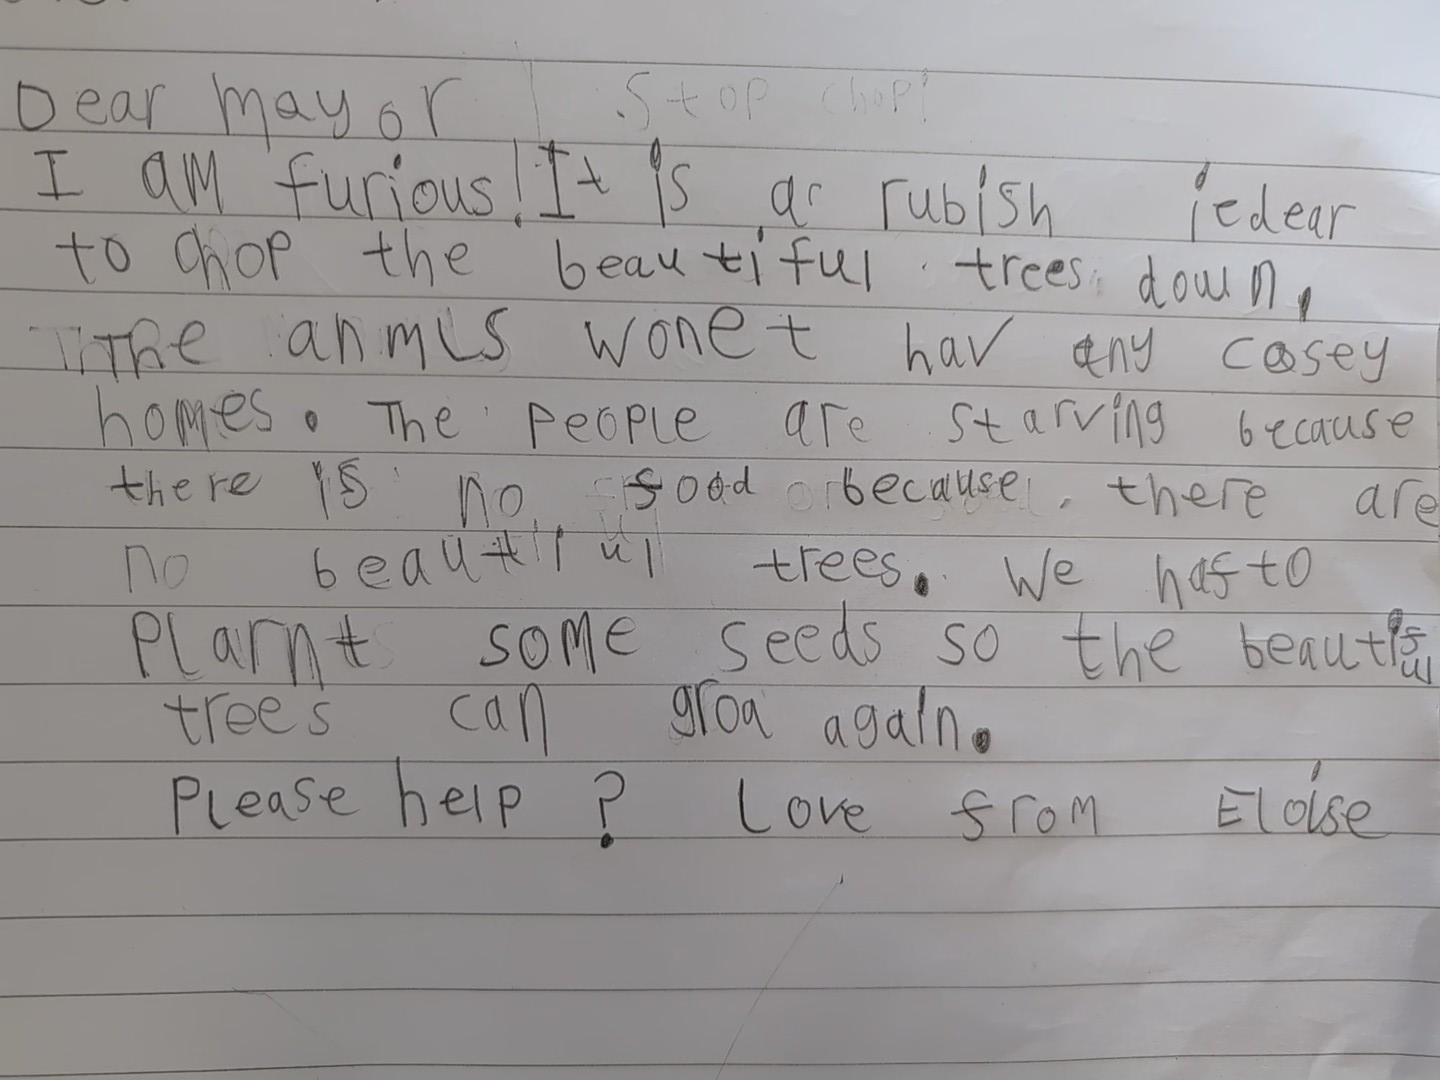 Dear Mayor Stop chop!
I am furious! It is a rubish iedear
to chop the beautiful trees down,
The anmls wonet hav any cosey
homes. The people are starving because
there is no food because there are
no beautiful trees. We hafto
Plarnt some seeds so the beautiful
trees can groa again.
Please help ? Love from Eloise